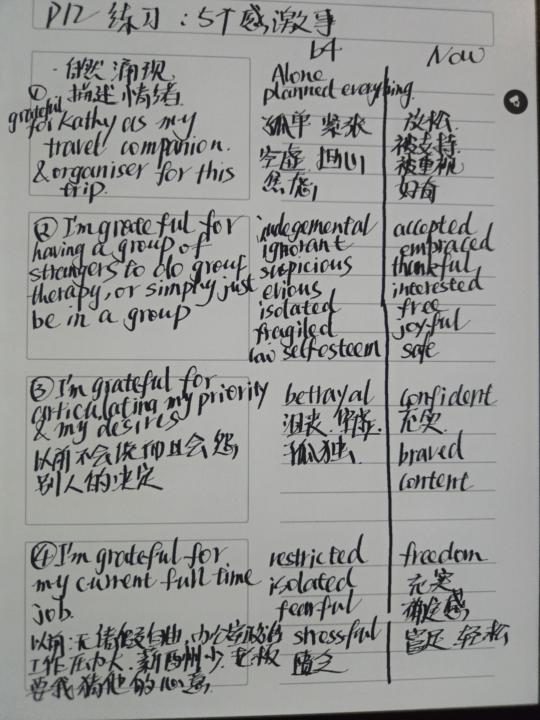 P12 练习：5个感激事
b4
Now
·自然涌现
·描述情绪
Alone
planned everything
孤单 紧张
空虚 担心
焦虑
放松
被支持
被重视
好奇
① grateful
for Kathy as my
travel companion.
& organiser for this
trip.
② I'm grateful for
having a group of
strangers to do group
therapy, or simply just
be in a group
judegemental
ignorant
suspicious
evious
isolated
fragiled
low selfesteem
accepted
embraced
thankful
interested
free
joyful
safe
③ I'm grateful for
articulating my priority
& my desires
以前不会说而且会怨
别人的决定
betrayal
沮丧 空虚
孤独
confident
充实
braved
content
④ I'm grateful for
my current full time
job.
以前:
工作 压力大 薪酬少 老板
要我猜他的心意
restricted
isolated
fearful
stressful
freedom
充实
满足感
富足 轻松